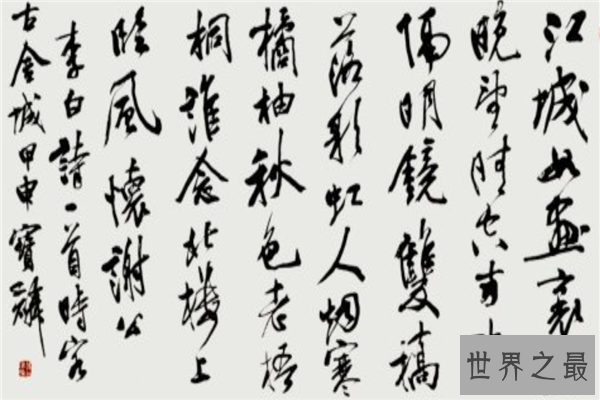 江城如畫裏
晚望晴空兩水
隔明鏡雙橋
落彩虹人烟寒
橘柚秋色老梧
桐誰念北樓上
臨風懷謝公
李白詩一首時客
古金城甲申寶麟
世界之最